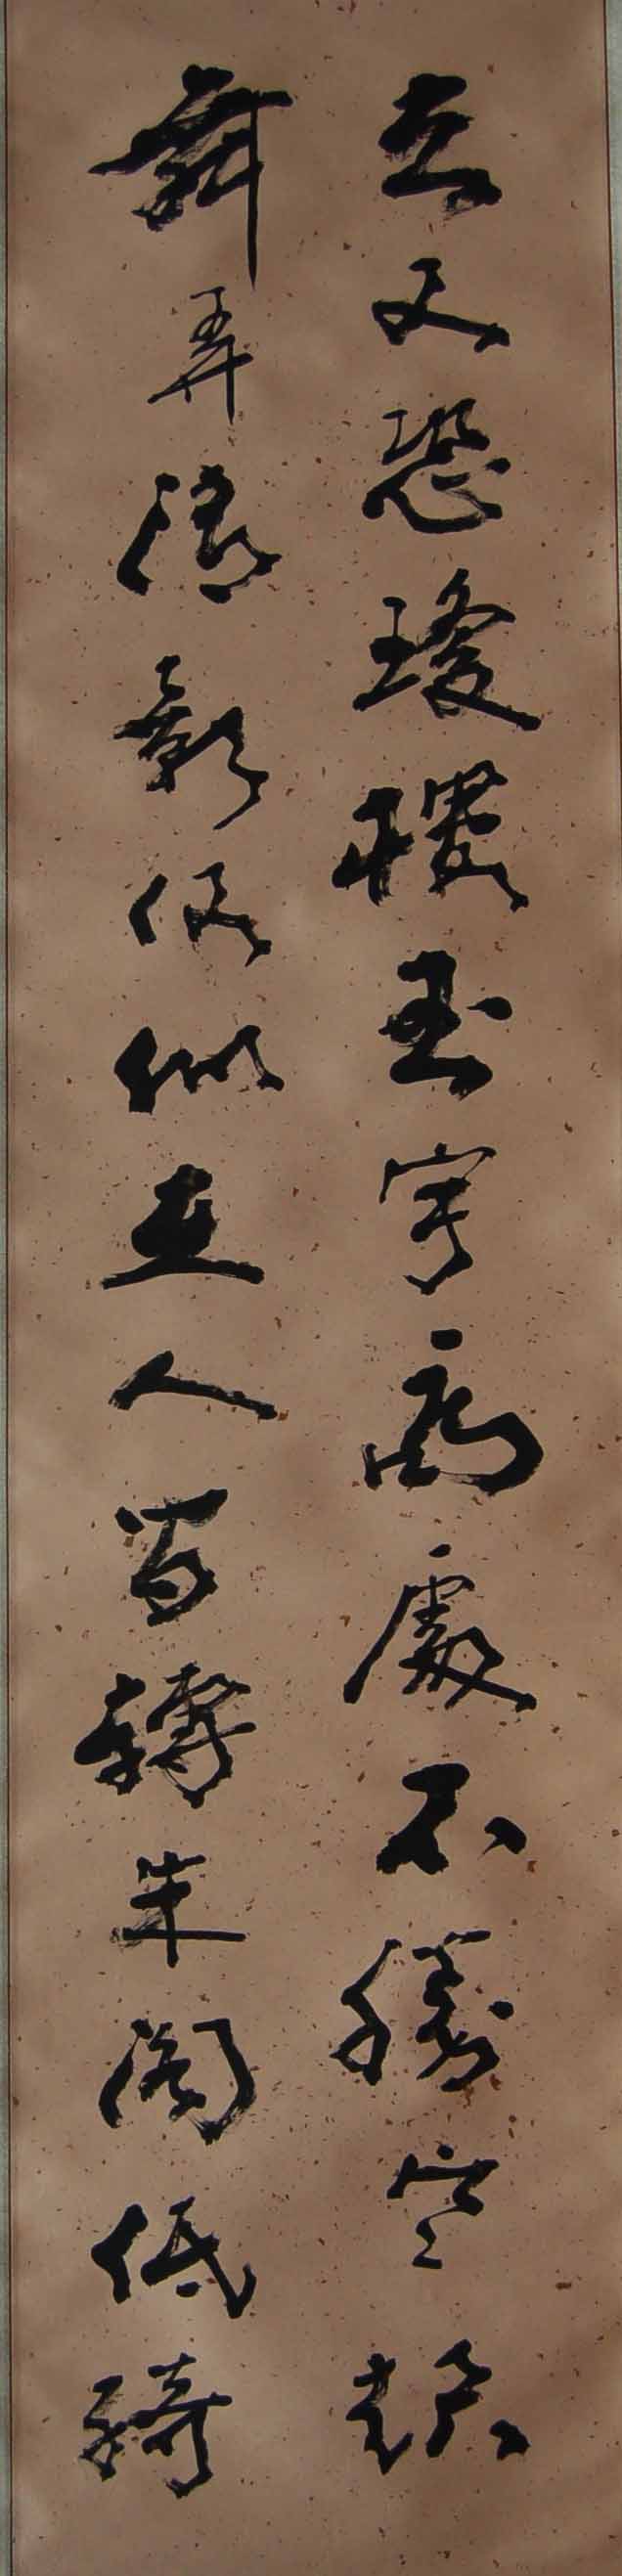 去又恐瓊樓玉宇高處不勝寒起
舞弄清影何似在人間轉朱閣低綺